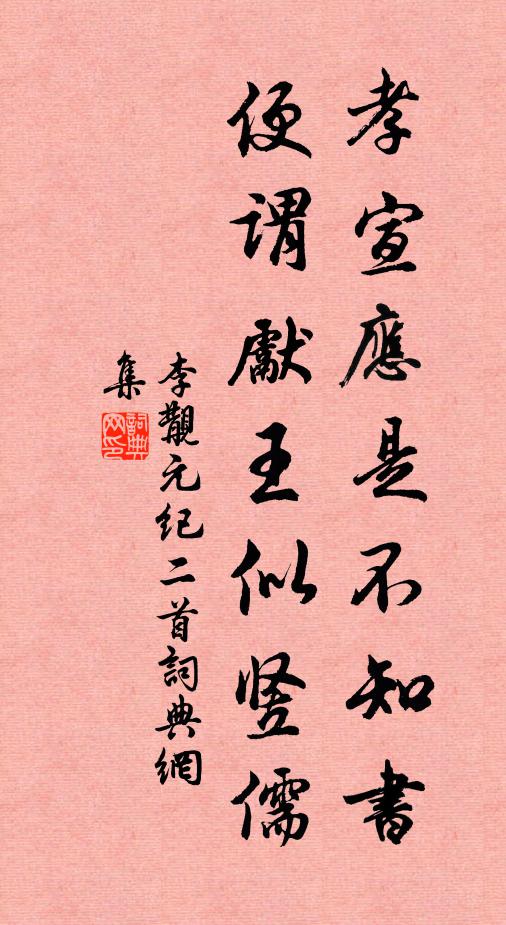 孝宣應是不知書
便謂獻王似竖儒
李覯元纪二首詞典網
集
詞典网印